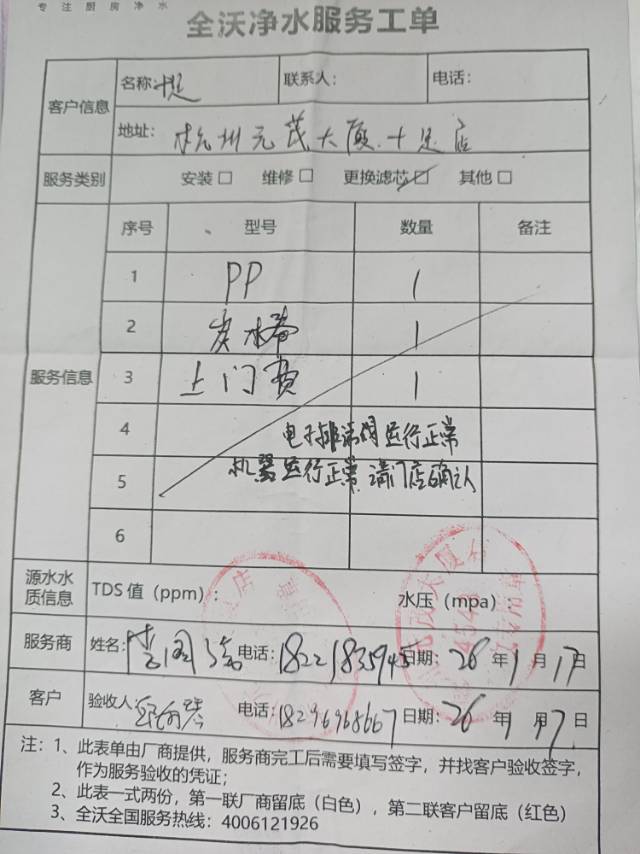 专注厨房净水
全沃净水服务工单
客户信息 名称: 十足 联系人: 电话:
地址: 杭州元茂大厦十足店
服务类别 安装□ 维修□ 更换滤芯☑ 其他□
服务信息 序号 型号 数量 备注
1 PP 1
2 炭水春 1
3 上门费 1
4 电子排沫阀运行正常
5 机器运行正常.请门店确认
6
源水水质信息 TDS 值（ppm）: 水压（mpa）:
服务商 姓名: 李国 电话: 18221835945 日期: 26年1月17日
客户 验收人: 电话: 18296968667 日期: 26年1月17日
注：1、此表单由厂商提供，服务商完工后需要填写签字，并找客户验收签字，
作为服务验收的凭证；
2、此表一式两份，第一联厂商留底（白色），第二联客户留底（红色）
3、全沃全国服务热线：4006121926